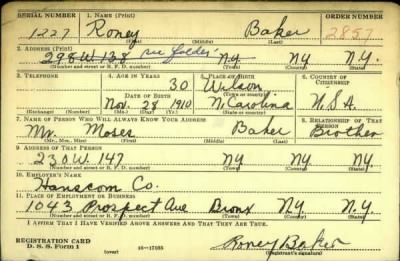 SERIAL NUMBER 1. NAME (Print) ORDER NUMBER
1227 Roney Baker 2857
(First) (Middle) (Last)
2. ADDRESS (Print)
298 W. 138 see folder N.Y. N.Y. N.Y.
(Number and street or R. F. D. number) (Town) (County) (State)
3. TELEPHONE 4. AGE IN YEARS 5. PLACE OF BIRTH 6. COUNTRY OF CITIZENSHIP
30 Wilson
DATE OF BIRTH (Town or county)
Nov. 28 1910 N Carolina U.S.A.
(Exchange) (Number) (Mo.) (Day) (Yr.) (State or country)
7. NAME OF PERSON WHO WILL ALWAYS KNOW YOUR ADDRESS 8. RELATIONSHIP OF THAT PERSON
Mr. Moses Baker Brother
(Mr., Mrs., Miss) (First) (Middle) (Last)
9. ADDRESS OF THAT PERSON
230 W. 147 NY NY NY
(Number and street or R. F. D. number) (Town) (County) (State)
10. EMPLOYER'S NAME
Hanscom Co.
11. PLACE OF EMPLOYMENT OR BUSINESS
1043 Prospect Ave Bronx N.Y. N.Y.
(Number and street or R. F. D. number) (Town) (County) (State)
I AFFIRM THAT I HAVE VERIFIED ABOVE ANSWERS AND THAT THEY ARE TRUE.
REGISTRATION CARD
D. S. S. Form 1 16—17105 Roney Baker
(Registrant's signature)